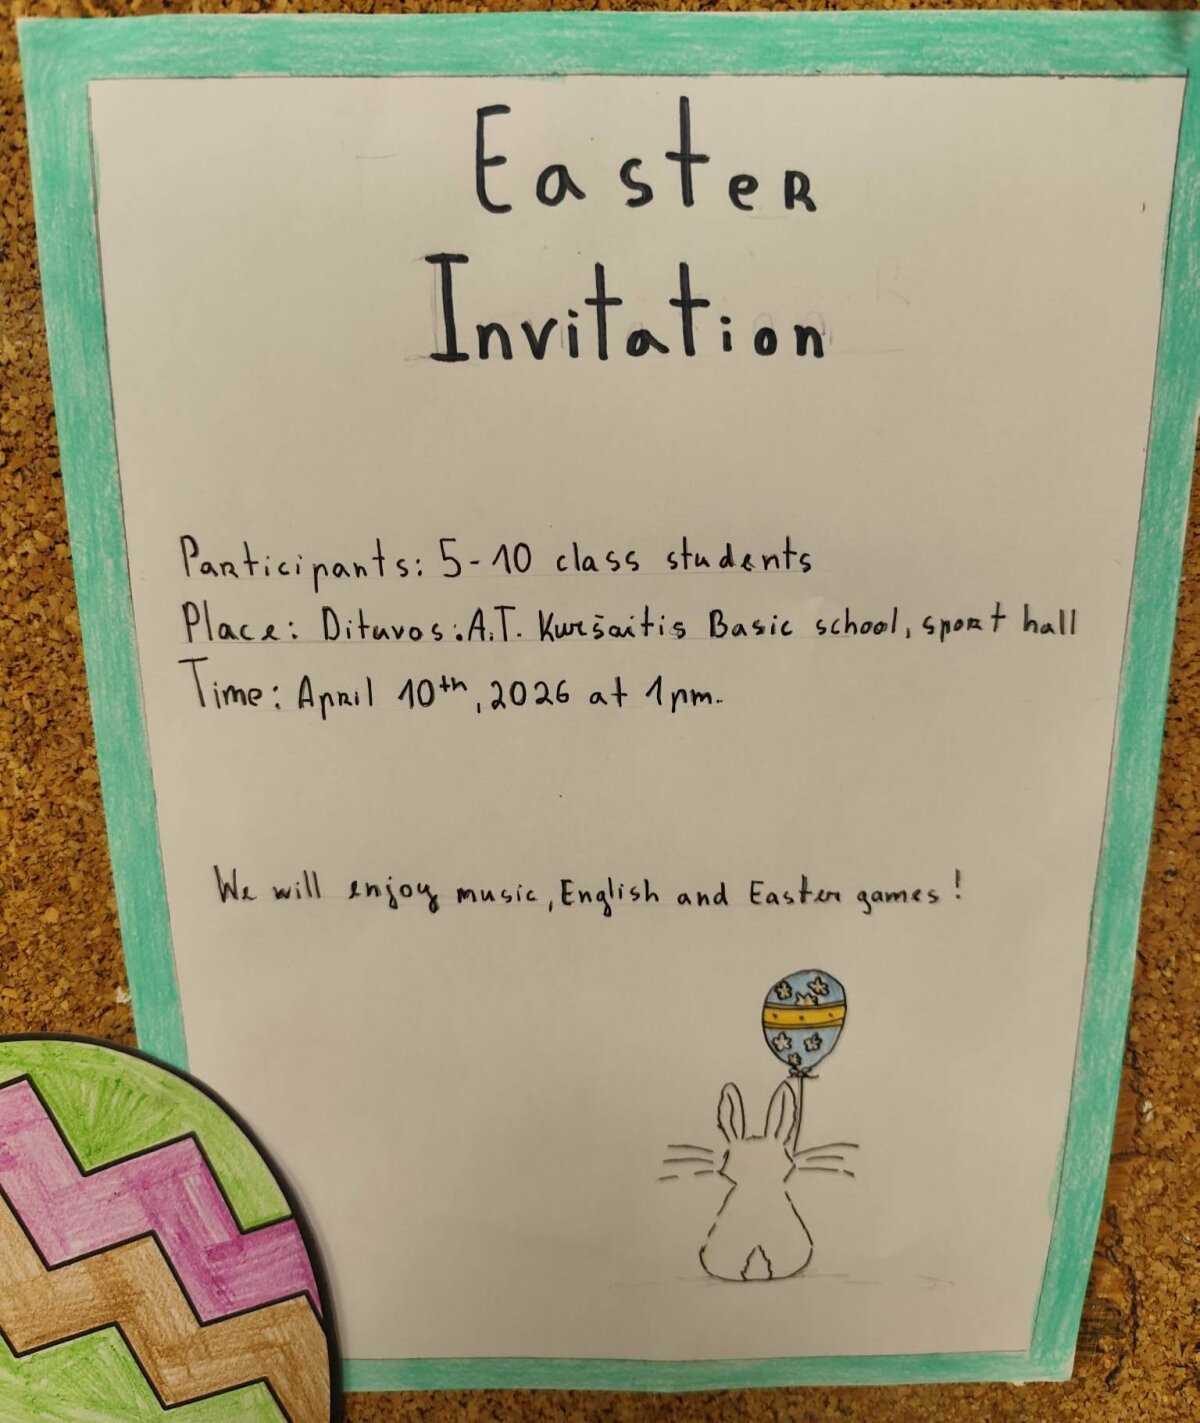 Easter
Invitation
Participants: 5-10 class students
Place: Dituvos:A.T. Kuršaitis Basic school, sport hall
Time: April 10th, 2026 at 1pm.
We will enjoy music, English and Easter games!